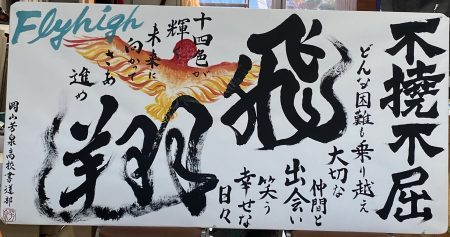 Flyhigh
不撓不屈
どんな困難も乗り越え
大切な
仲間と
出会い
笑う
幸せな
日々
飛翔
十四色が
輝く
未来に
向かって
さあ
進め
岡山芳泉高校書道部